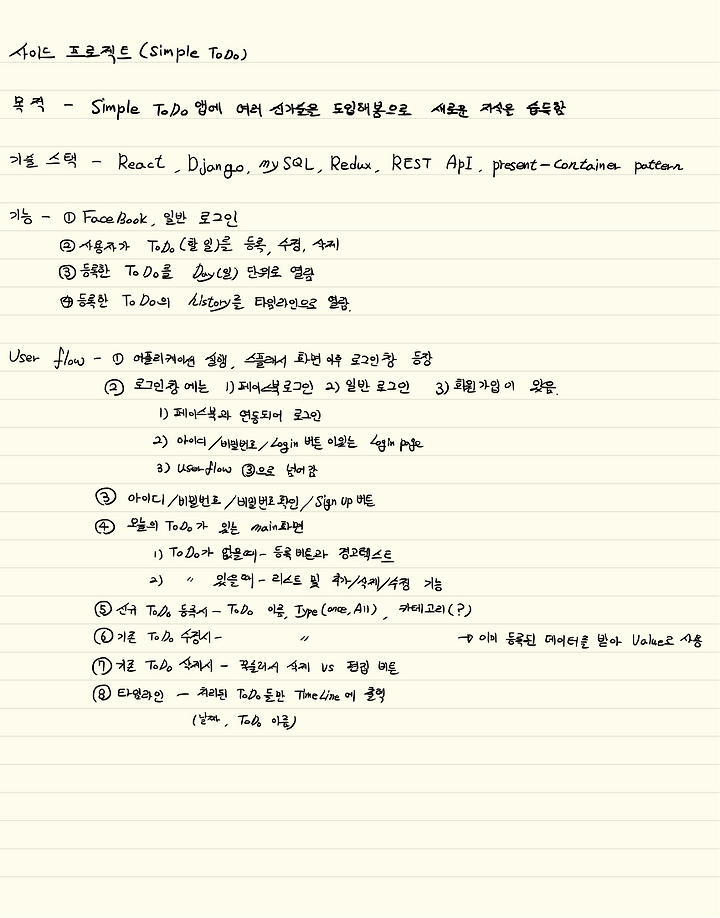 사이드 프로젝트 (Simple ToDo)
목적 - Simple ToDo 앱에 여러 신기술을 도입해봄으로 새로운 지식을 습득함
기술 스택 - React, Django, mySQL, Redux, REST ApI, present-container pattern
기능 - ① FaceBook, 일반 로그인
② 사용자가 ToDo(할 일)를 등록, 수정, 삭제
③ 등록한 ToDo를 Day(일) 단위로 열람
④ 등록한 ToDo의 history를 타임라인으로 열람.
User flow - ① 어플리케이션 실행, 스플래시 화면 이후 로그인 창 등장
② 로그인 창에는 1) 페이스북 로그인 2) 일반 로그인 3) 회원가입이 있음.
1) 페이스북과 연동되어 로그인
2) 아이디/비밀번호/Login 버튼 이있는 Login page
3) User flow ③으로 넘어감
③ 아이디/비밀번호/비밀번호확인/Sign Up 버튼
④ 오늘의 ToDo가 있는 main화면
1) ToDo가 없을때 - 등록 버튼과 경고텍스트
2) 〃 있을때 - 리스트 및 추가/삭제/수정 기능
⑤ 신규 ToDo 등록시 - ToDo 이름, Type(once, All), 카테고리(?)
⑥ 기존 ToDo 수정시 - 〃 → 이미 등록된 데이터를 받아 Value로 사용
⑦ 기존 ToDo 삭제시 - 꾹눌러서 삭제 vs 편집 버튼
⑧ 타임라인 - 처리된 ToDo들만 TimeLine에 출력
(날짜, ToDo 이름)